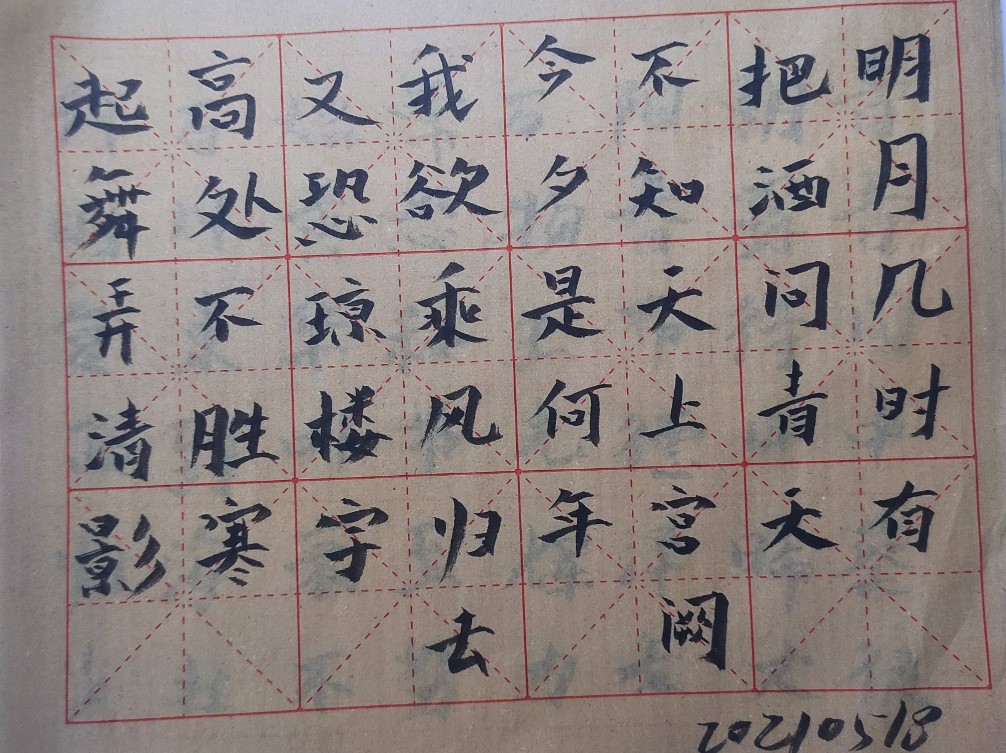 明月几时有
把酒问青天
不知天上宫阙
今夕是何年
我欲乘风归去
又恐琼楼宇
高处不胜寒
起舞弄清影
20210518